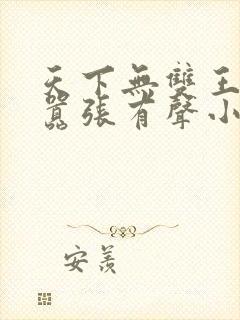 天下無雙王
囂張有聲小
安羨